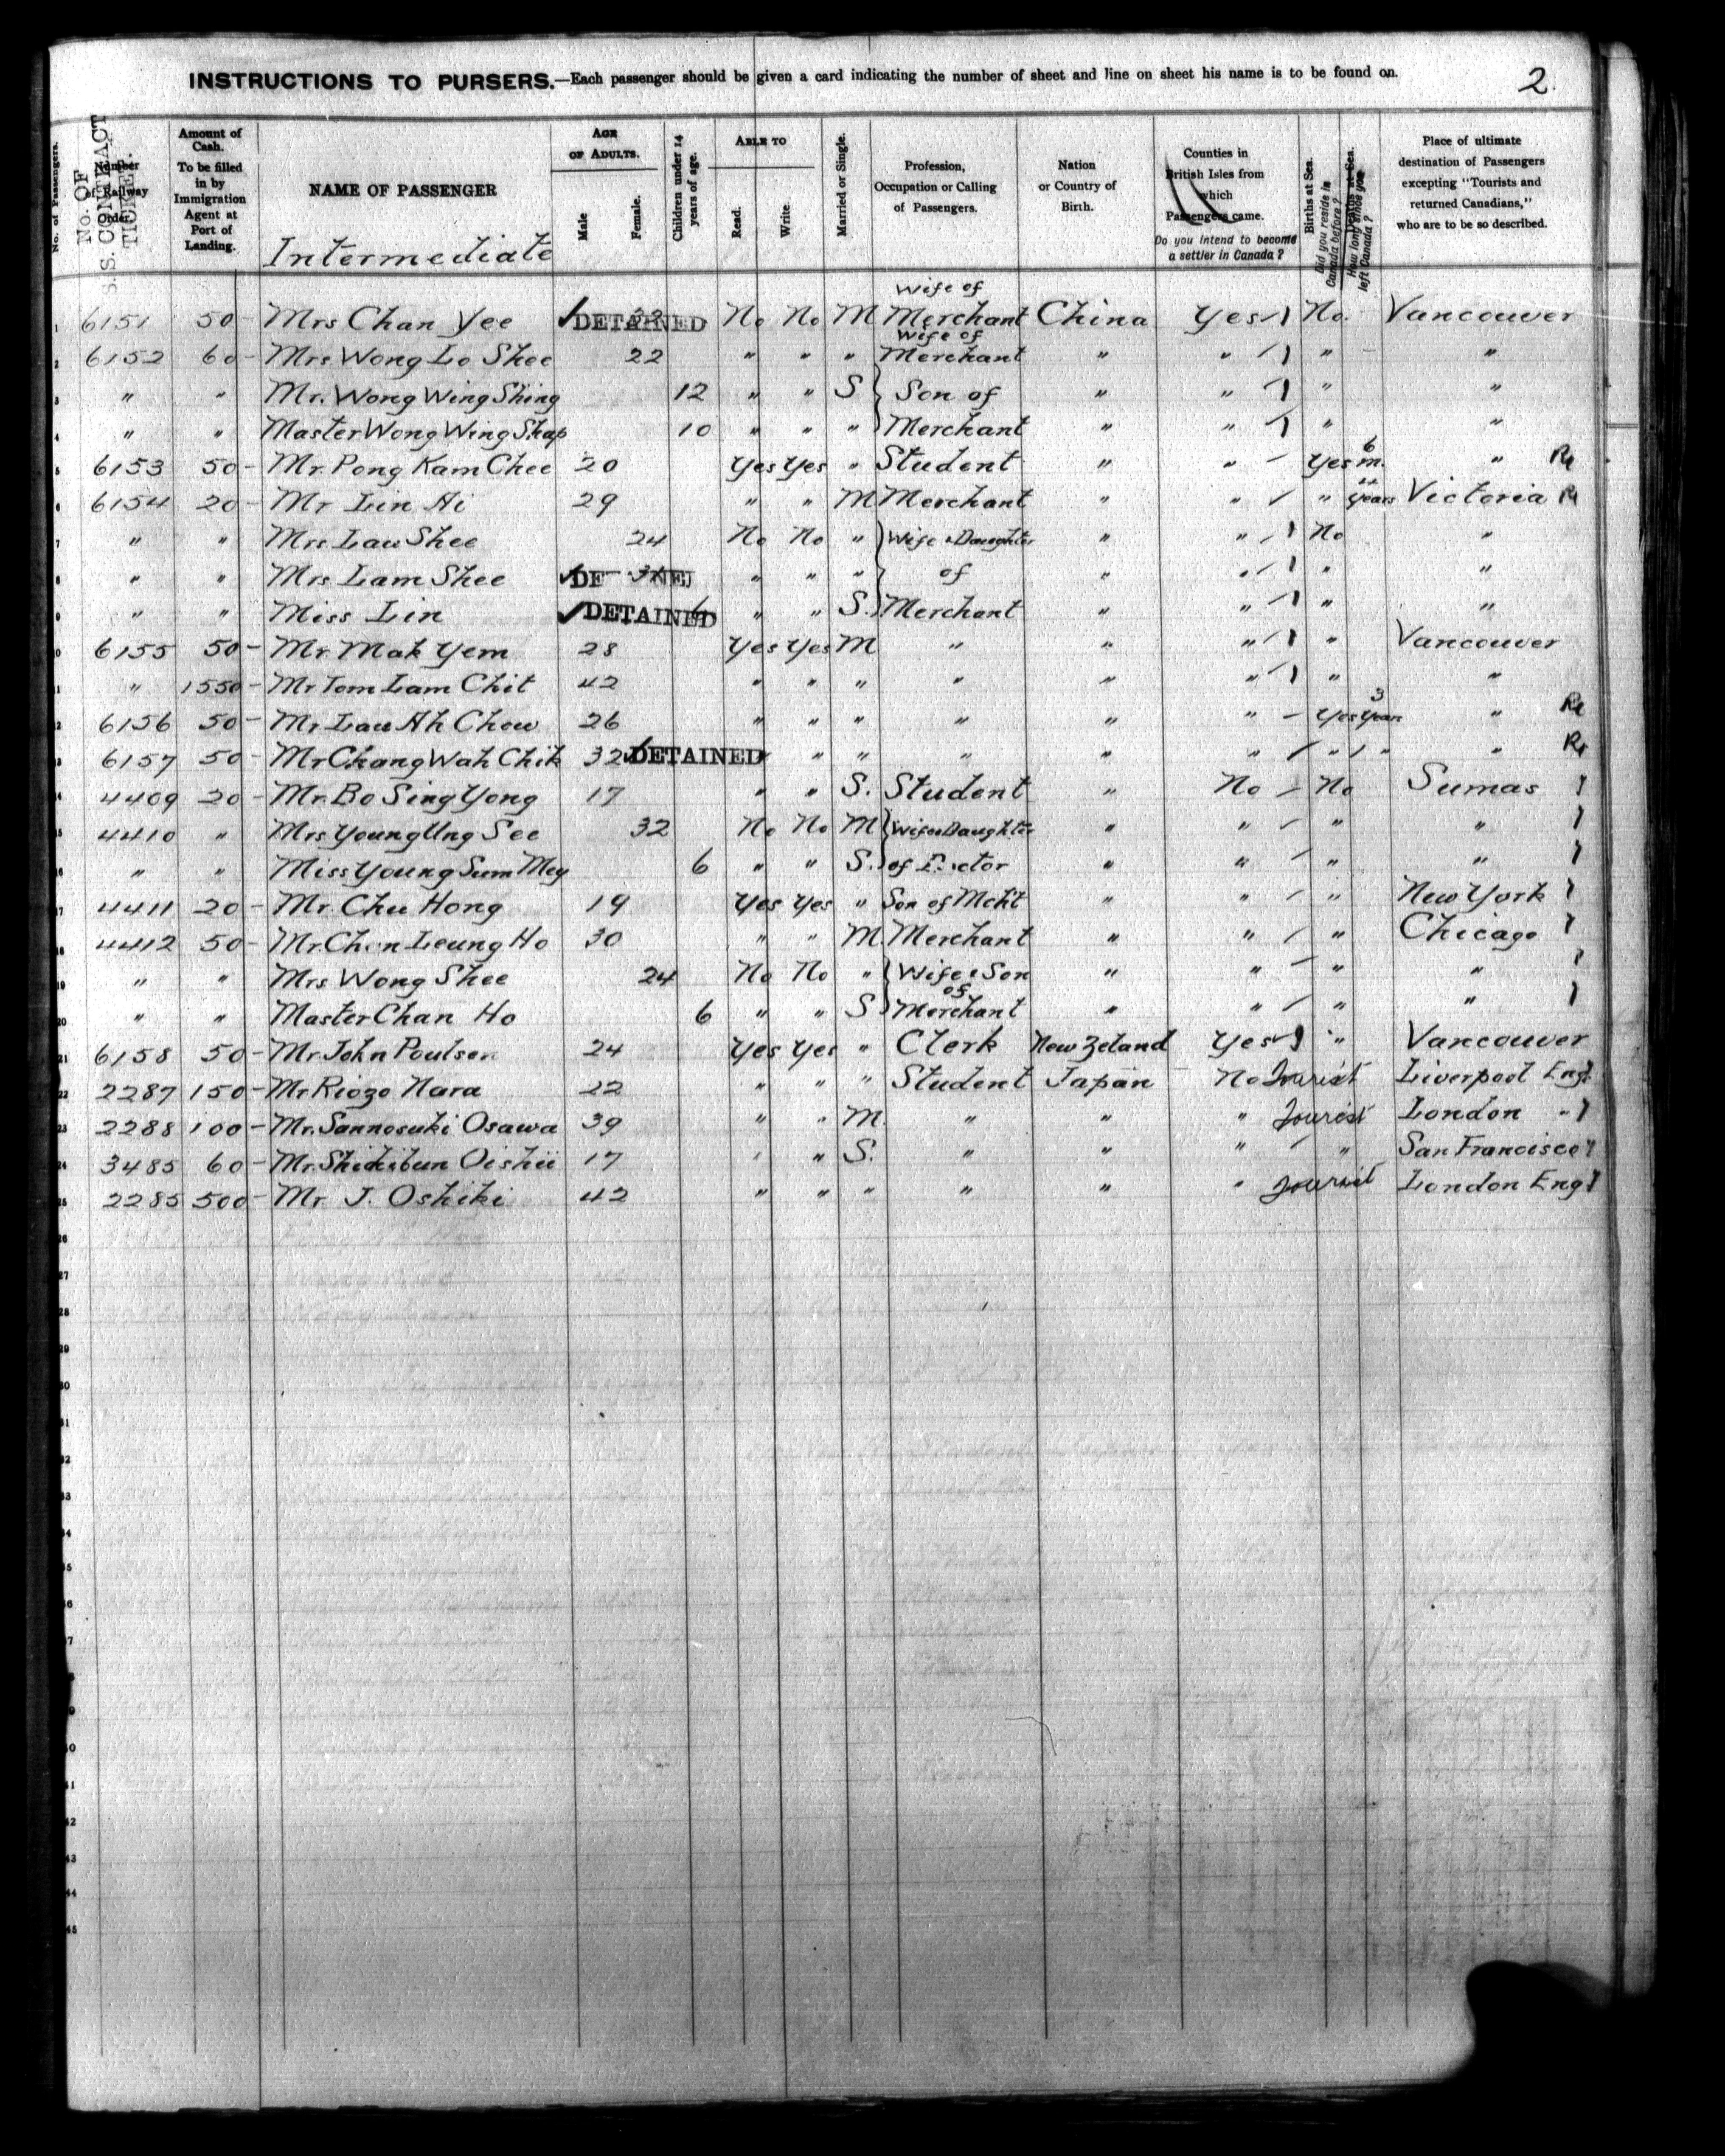 INSTRUCTIONS TO PURSERS.—Each passenger should be given a card indicating the number of sheet and line on sheet his name is to be found on.
2.
No. of Passengers.
Number of Railway Order
S.S. CONTRACT TICKET.
No. OF
Amount of Cash. To be filled in by Immigration Agent at Port of Landing.
NAME OF PASSENGER
Intermediate
AGE OF ADULTS.
Male
Female.
Children under 14 years of age.
ABLE TO
Read.
Write.
Married or Single.
Profession, Occupation or Calling of Passengers.
Nation or Country of Birth.
Counties in British Isles from which Passengers came.
Do you intend to become a settler in Canada?
Births at Sea.
Did you reside in Canada before?
Deaths at Sea.
How long since you left Canada?
Place of ultimate destination of Passengers excepting "Tourists and returned Canadians," who are to be so described.
1 6151 50 - Mrs Chan Yee DETAINED No No M Wife of Merchant China Yes No. Vancouver
2 6152 60 - Mrs Wong Lo Shee 22 " " " Wife of Merchant " " " "
3 " " Mr. Wong Wing Shing 12 " " S } Son of " " " "
4 " " Master Wong Wing Shap 10 " " " } Merchant " " " "
5 6153 50 - Mr. Pong Kam Chee 20 Yes Yes " Student " " Yes 6 m. "
6 6154 20 - Mr Lin Ai 29 " " M Merchant " " " Years Victoria
7 " " Mrs Lau Shee 24 No No " } Wife & Daughter " " No "
8 " " Mrs Lam Shee " " " } of " " " "
9 " " Miss Lin DETAINED 6 " " S. } Merchant " " " "
10 6155 50 - Mr Mak Yem 28 Yes Yes M " " " " Vancouver
11 " 1550 - Mr Tom Lam Chit 42 " " " " " " " "
12 6156 50 - Mr Lau Ah Chow 26 " " " " " " Yes 3 Years "
13 6157 50 - Mr Chang Wah Chik 32 DETAINED " " " " " " " " "
14 4409 20 - Mr. Bo Sing Yong 17 " " S. Student " No No Sumas
15 4410 " Mrs Young Ung See 32 No No M { Wife & Daughter " " " "
16 " " Miss Young Sum Mey 6 " " S. } of " " " "
17 4411 20 - Mr. Chu Hong 19 Yes Yes " Son of Mcht " " " New York
18 4412 50 - Mr. Chan Leung Ho 30 " " M. Merchant " " " Chicago
19 " " Mrs Wong Shee 24 No No " { Wife & Son of " " " "
20 " " Master Chan Ho 6 " " S } Merchant " " " "
21 6158 50 - Mr John Poulsen 24 Yes Yes " Clerk New Zeland Yes " Vancouver
22 2287 150 - Mr Riozo Nara 22 " " " Student Japan No Tourist Liverpool Eng.
23 2288 100 - Mr. Sannosuki Osawa 39 " " M. " " " Tourist London "
24 3485 60 - Mr. Shichibun Oishii 17 " " S. " " " " San Francisco
25 2285 500 - Mr J. Oshiki 42 " " " " " " Tourist London Eng
26
27
28
29
30
31
32
33
34
35
36
37
38
39
40
41
42
43
44
45